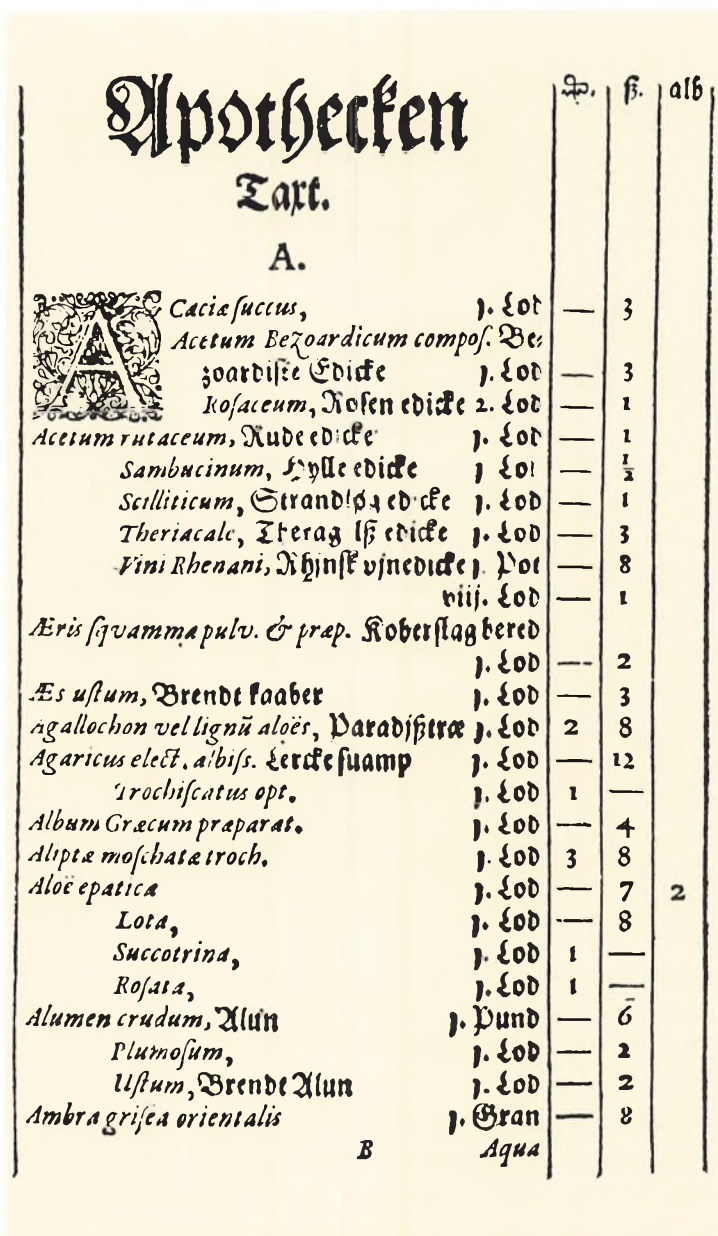 Apothecken ꝶ. ß. alb
Taxt.
A.
ACaciæ succus, j. Lod — 3
Acetum Bezoardicum compos. Be⸗
zoardiste Edicke j. Lod — 3
Rosaceum, Rosen edicke 2. Lod — 1
Acetum rutaceum, Rude edicke j. Lod — 1
Sambucinum, Hylle edicke j Lod — ½
Scilliticum, Strandløg edicke j. Lod — 1
Theriacale, edicke j. Lod — 3
Vini Rhenani, Rhinsk vjnedicke j. Pot — 8
viij. Lod — 1
Æris squamma pulv. & præp. Koberslag bered
j. Lod — 2
Æs ustum, Brendt kaaber j. Lod — 3
Agallochon vel lignũ aloës, Paradjßtræ j. Lod 2 8
Agaricus elect. albiss. Lerckesuamp j. Lod — 12
Trochiscatus opt. j. Lod 1 —
Album Græcum præparat. j. Lod — 4
Aliptæ moschatæ troch. j. Lod 3 8
Aloë epatica j. Lod — 7 2
Lota, j. Lod — 8
Succotrina, j. Lod 1 —
Rosata, j. Lod 1 —
Alumen crudum, Alun j. Pund — 6
Plumosum, j. Lod — 2
Ustum, Brendt Alun j. Lod — 2
Ambra grisea orientalis j. Gran — 8
B Aqua